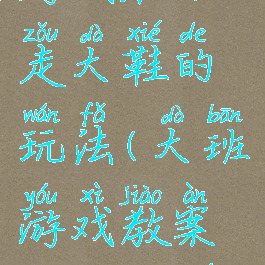 zǒu dà xié de
走大鞋的
wán fǎ dà bān
玩法(大班
yóu xì jiào àn
游戏教案